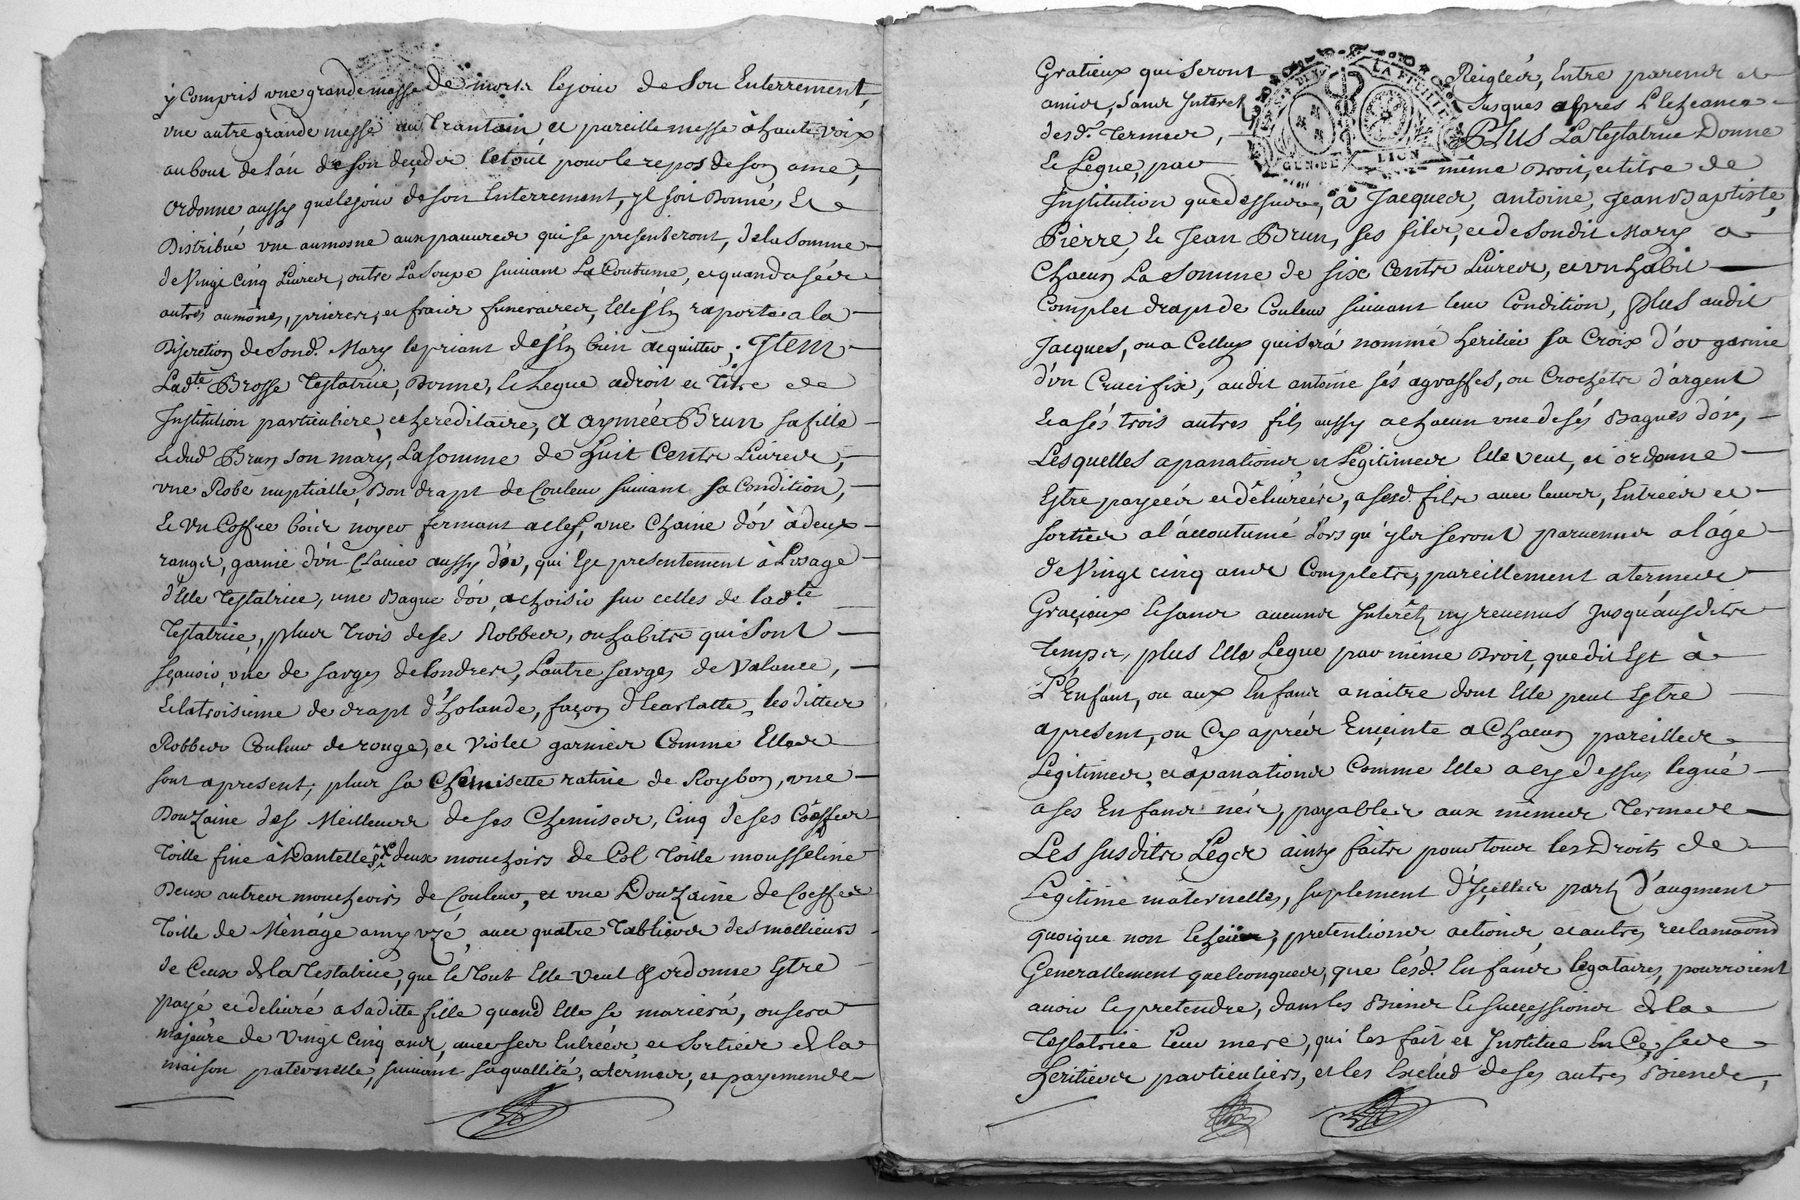 y Compris vne grande messe de morts le jour de Son Enterrement,
vne autre grande messe au trantain et pareille messe à haute voix
au bout de l'an de son decèds le tout pour le repos de son ame,
ordonne aussy que le jour de son Enterrement, yl soit Donné, Et
Distribué vne aumosne aux pauvres qui se presenteront, de la Somme
de Vingt Cinq Livres, outre La Soupe suivant La Coutume, et quand a sés
autres aumônes, prieres, et frais funeraires, Elle s'En raporte a la
Discretion de Sond. Mary le priant de s'En bien acquitter; Item
Ladte. Brosse Testatrice, Donne, et Legue a droit et Titre de
Institution particuliere, et hereditaire, A aymée Brun sa fille
et dud Brun son mary, La somme de huit Cents Livres,
vne Robe nuptialle, Bon drapt de Couleur suivant sa Condition,
Et vn Coffre bois noyer fermant a clef, vne Chaine d'or à deux
rangs, garnie d'un Clavier aussy d'or, qui Est presentement à L'usage
d'Elle Testatrice, une Bague d'or, a choisir sur celles de ladte.
Testatrice, plus trois de ses Robbes, ou habits qui sont
sçavoir, vne de sarges de londres, L'autre sarges de Valance,
Et la troisieme de drapt d'holande, façon d'Ecarlatte, les dittes
Robbes Couleur de rouge, et violet garnies Comme Elles
sont apresent, plus sa Chemisette ratine de Roybon, vne
Douzaine des Meilleures de ses Chemises, Cinq de ses Coëffes
Toille fine à Dantelles deux mouchoirs de Col Toille mousseline
Deux autres mouchoirs de Couleur, et vne Douzaine de Coeffes
Toille de Ménage amy vzé, avec quatre Tabliers des mellieurs
de Ceux de la Testatrice, que le tout Elle veut & ordonne Estre
payé, et delivré a sa ditte fille quand Elle se marierá, ou sera
majeure de Vingt Cinq ans, avec ses Entrées, et Sorties de la
maison paternelle, suivant sa quallité, a termes, et payements
Gratieux qui Seront Reiglés, Entre parents et
amis, sans Interet Jusques apres L'Echeance
desd. Termes, PLUS La Testatrice Donne
Et Legue, par même Droit, et titre de
Institution que dessus, à Jacques, antoine, Jean Baptiste,
Pierre, Et Jean Brun, ses fils, et de Sondit Mary a
Chacun La Somme de Six Cents Livres, et vn habit
Complet drapt de Couleur suivant leur Condition, plus audit
Jacques, ou a Celluy qui sera nommé heritier sa Croix d'or garnie
d'vn Crucifix, audit antoine sés agraffes, ou Crochets d'argent
Et a sés trois autres fils aussy a chacun vne de sés Bagues d'or,
Lesquelles apanations et Legitimes Elle veut, et ordonne
Estre payeés et délivrées, a sesd. fils avec leurs, Entrées et
sorties a l'accoutumé Lors qu'yls seront parvenus a l'áge
de Vingt cinq ans Complets, pareillement a termes
Graçieux et sans aucuns Interêts, ny revenus jusqu'ausdits
Temps, plus Elle Legue par même Droit, que dit Est à
L'Enfant, ou aux Enfans a naitre dont Elle peut Estre
apresent, ou Cy aprés Enceinte a Chacun pareilles
Legitimes, et apanations Comme Elle a cy dessus legué
a ses Enfans nés, payables aux mêmes Termes
Les susdits Legs ainsy faits pour tous les Droits de
Legitime maternelles, suplement d'Icelles part d'augment
quoique non Echeüe, pretentions actions, et autres reclamaons
Generallement quelconques, que lésd. Enfans legataires, pourroient
avoir et pretendre, dans les Biens Et successions de la
Testatrice Leur mere, qui les fait et Institue En Ce, ses
heritiers particuliers, et les Exclud de ses autres Biens,
GEN DE LION